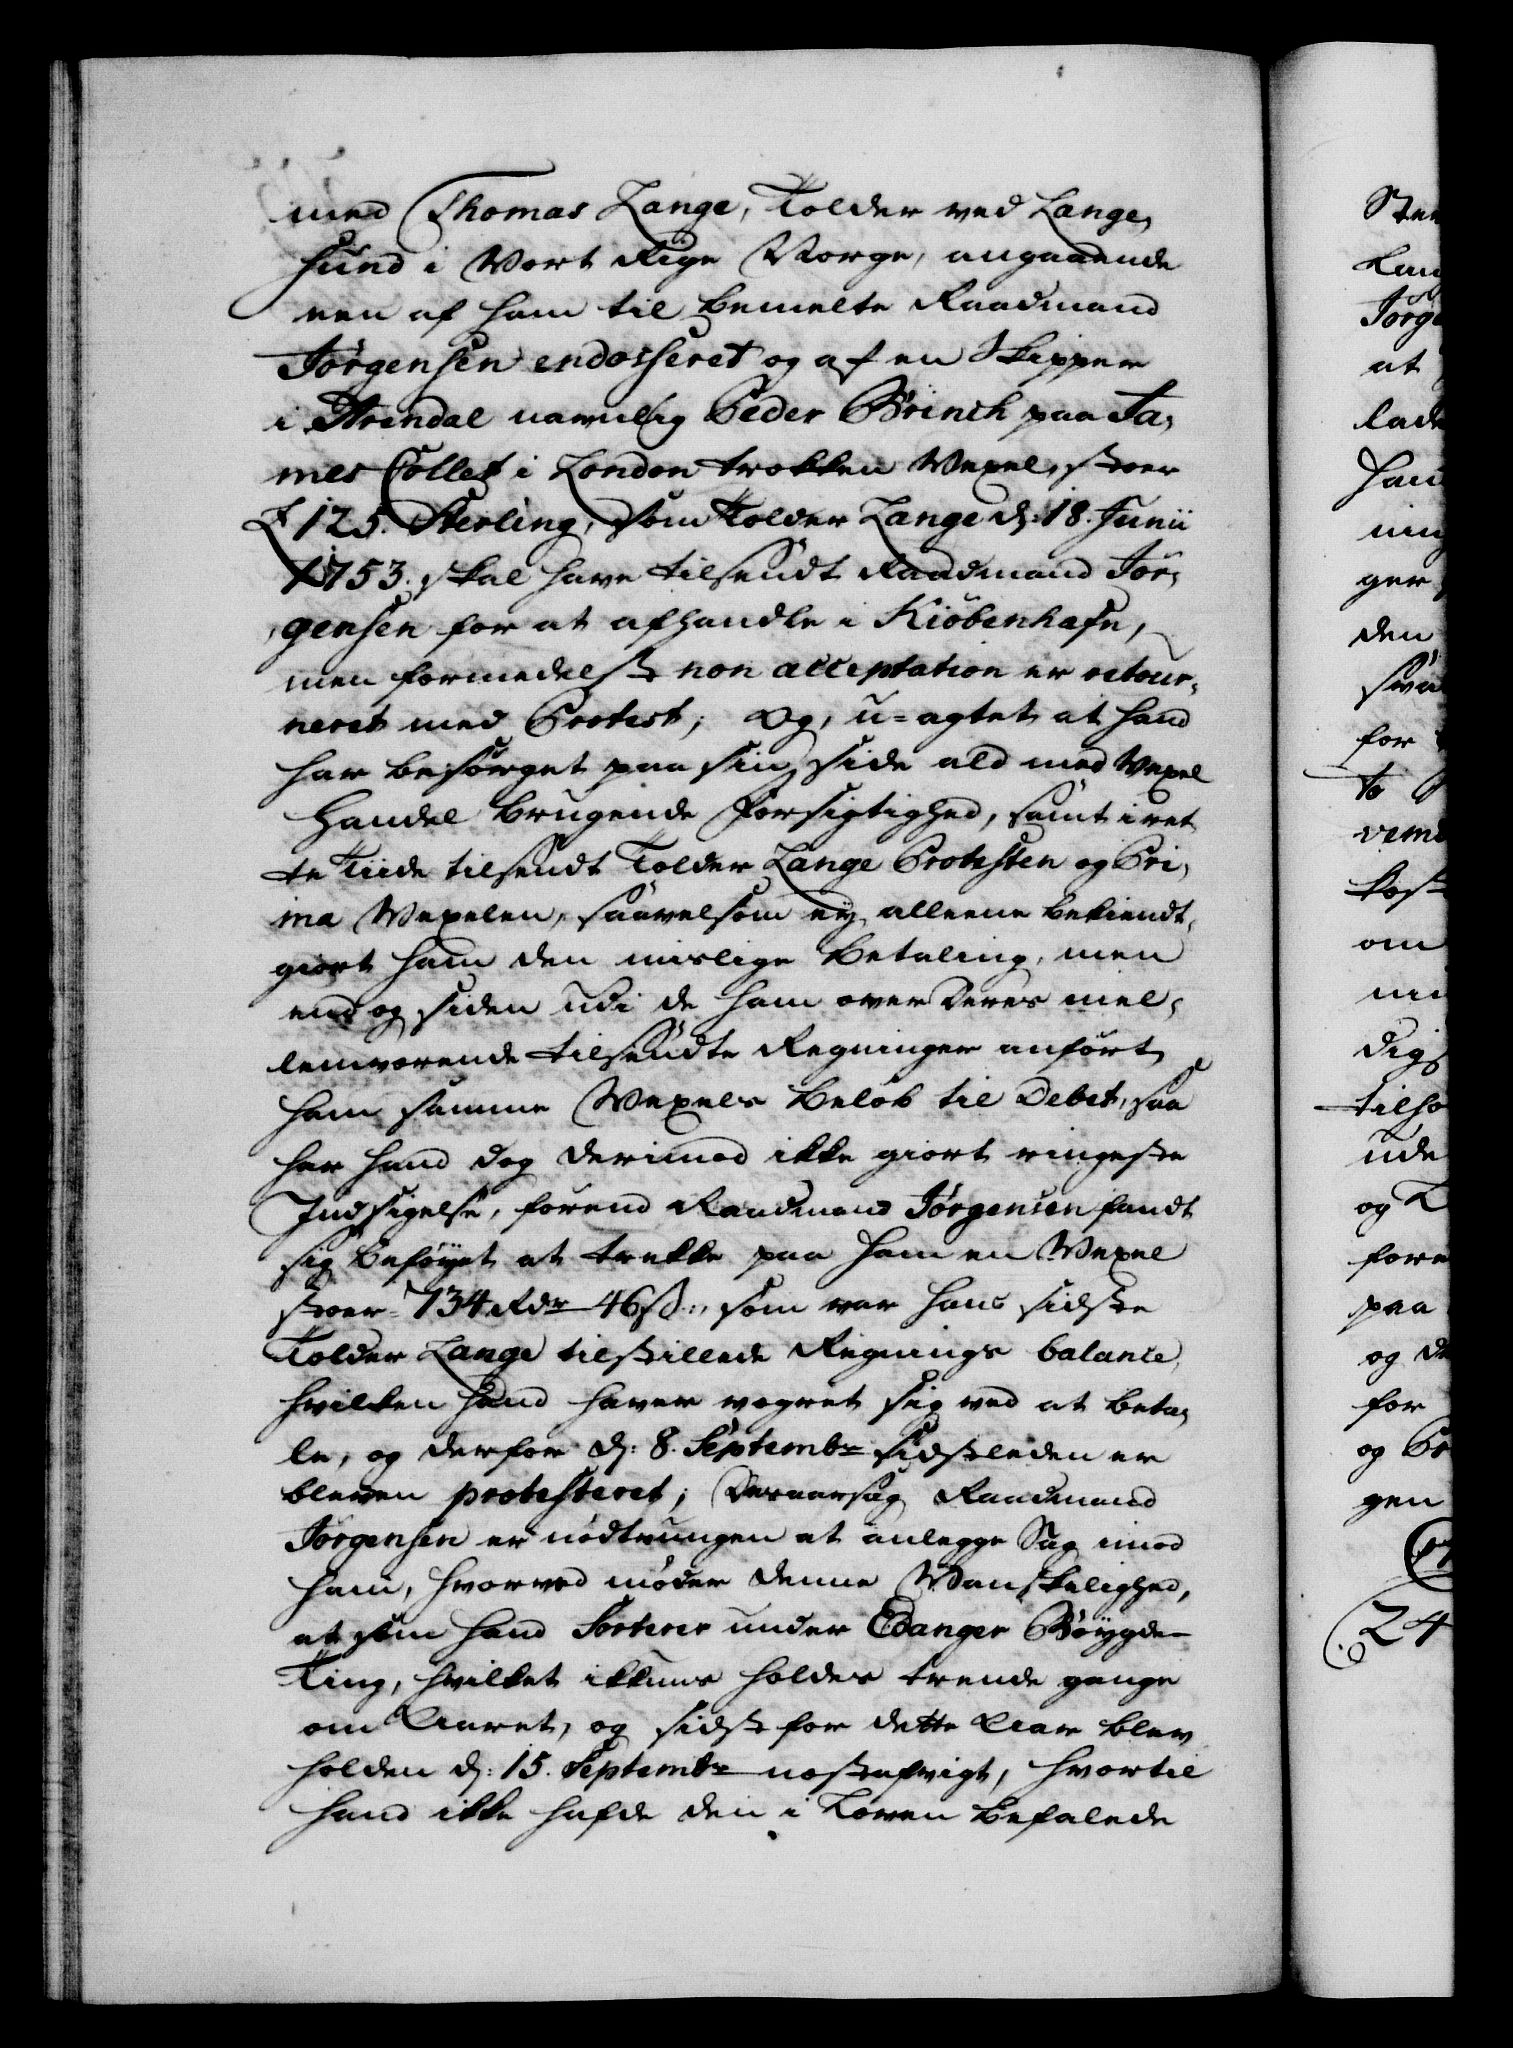 med Thomas Lange, Tolder ved Lange,
sund i Vort Rige Norge, angaaende
een af ham til bemelte Raadmand
Jørgensen endosseret og af en Skipper
i Arendal navnlig Peder Brinch paa Ja,
mes Collet i London trokken Vexel, stoer
£ 125. Sterling, som Tolder Lange d: 18. Junii
1753. skal have tilsendt Raadmand Jør,
gensen for at afhandle i Kiöbenhafn,
men formedelst non acceptation er retour,
neret med Protest; Og, u=agtet at hand
har besørget paa sin side ald med Vexel
Handel brugende Forsigtighed, samt i ret
te Tiide tilsendt Tolder Lange Protesten og Pri,
ma Vexelen, saavelsom ey alleene bekiendt,
giort ham den mislige Betaling, men
end og siden udi de ham over Deres mel,
lemværende tilsendte Regninger anført
ham samme Vexels Beløb til Debet, saa
har hand dog derimod ikke giort ringeste
Indsigelse, førend Raadmand Jørgensen fandt
sig beføyet at trekke paa ham en Vexel
stoer 734 Rdr 46 ß, som var hans sidste
Tolder Lange tilstillede Regnings balance,
hvilken hand haver vegret sig ved at beta,
le, og derfor d: 8. Septembr sidstleden er
bleven protesteret; Desaarsag Raadmand
Jørgensen er nødtrungen at anlegge Sag imod
ham, hvorved møder denne Vanskelighed,
at som hand Sorterer under Edanger Böygde-
Ting, hvilket ikkuns holdes trende gange
om Aaret, og sidst for dette Aar blev
holden d: 15. Septembr nestafvigt, hvortil
hand ikke hafde den i Loven befalede